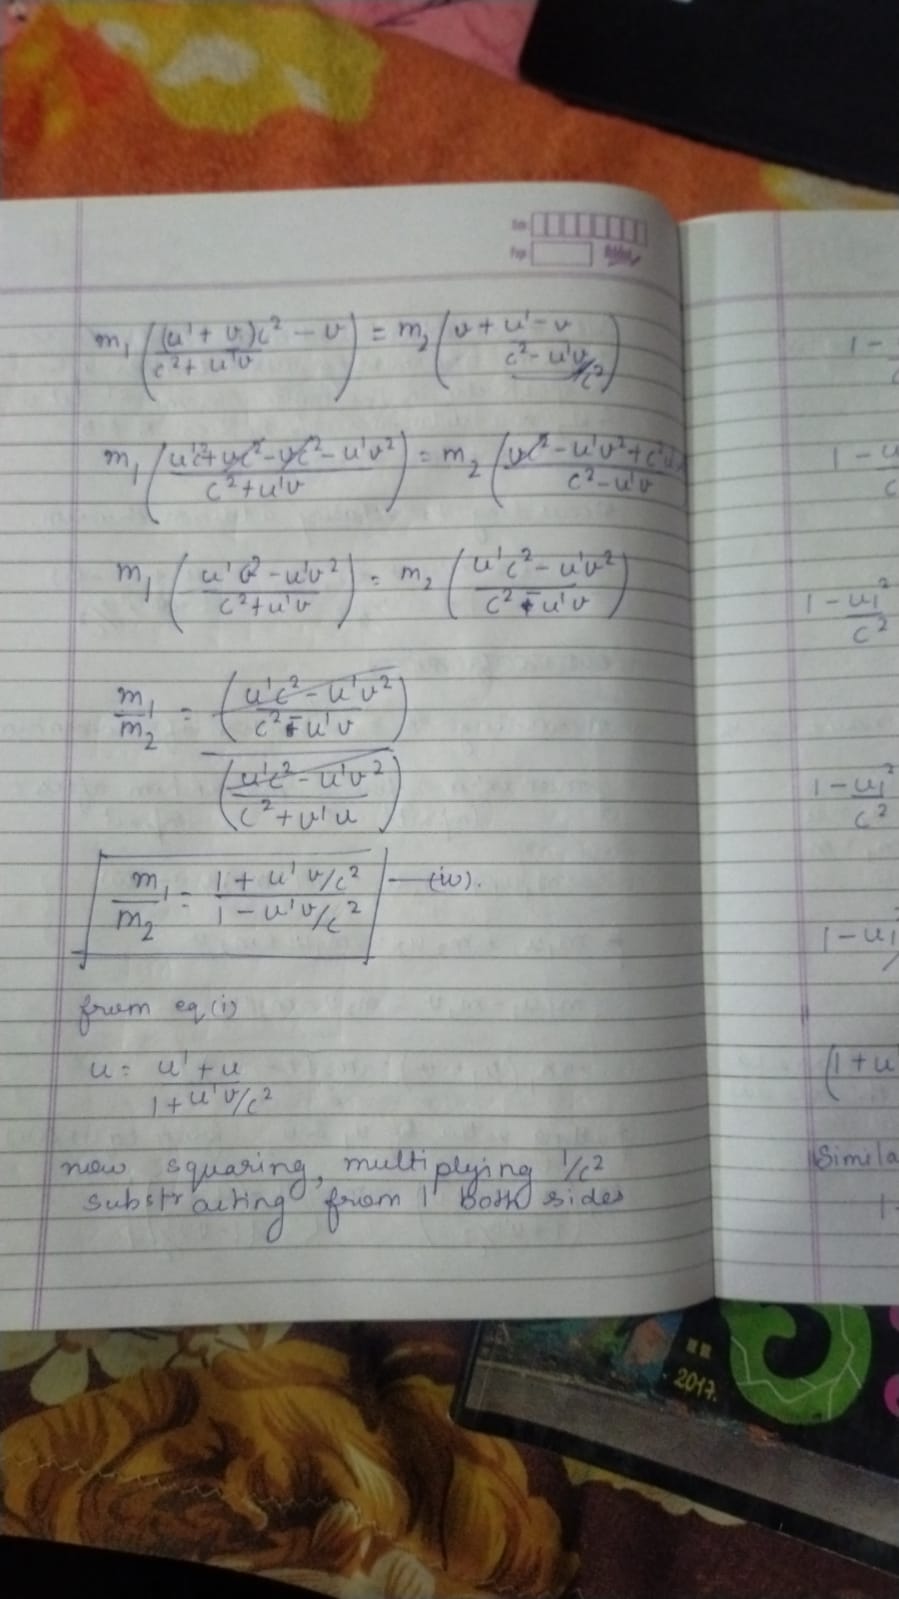 m₁ ((u' + v)c² − v / c² + u'v) = m₂ (v + u' − v / c² − u'v/c²)
m₁ (u'c² + vc² − vc² − u'v² / c² + u'v) = m₂ (vc² − u'v² + c²u' / c² − u'v)
m₁ (u'c² − u'v² / c² + u'v) = m₂ (u'c² − u'v² / c² − u'v)
m₁/m₂ = (u'c² − u'v² / c² − u'v) / (u'c² − u'v² / c² + v'u)
m₁/m₂ = 1 + u'v/c² / 1 − u'v/c² —(iv).
from eq (i)
u = u' + u / 1 + u'v/c²
now squaring, multiplying 1/c²
substracting from 1 both sides
1 −
1 − u / c
1 − u₁² / c²
1 − u₁² / c²
1 − u₁
(1 + u'
Simila
1 -
2017.